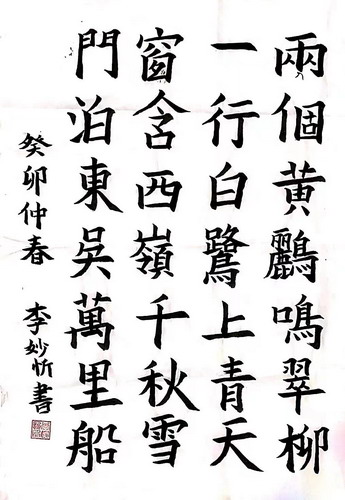 兩個黄鸝鳴翠柳
一行白鷺上青天
窗含西嶺千秋雪
門泊東吳萬里船
癸卯仲春 李妙忻書